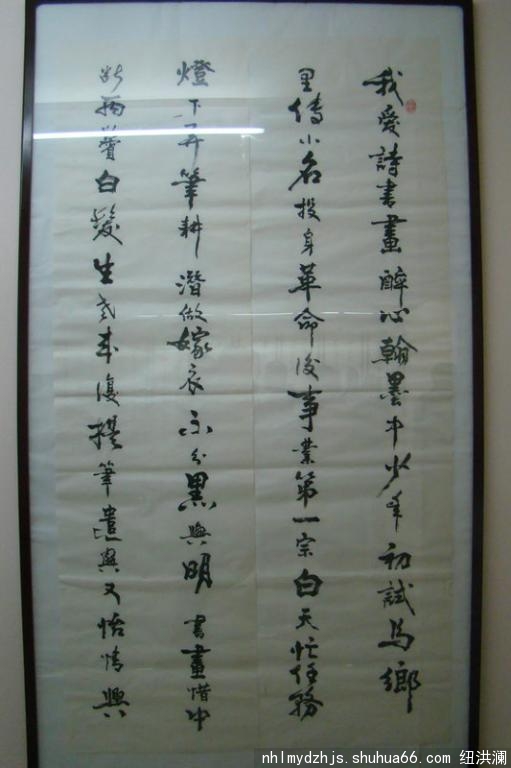 我愛詩書畫醉心翰墨中少年初試馬鄉
里傳小名投身革命後事業第一宗白天忙任務
燈下弄筆耕潛做嫁衣不分黑與明書畫惜中
斷兩鬢白髮生老來復操筆遣興又怡情興
nhlmydzhjs.shuhua66.com 纽洪澜